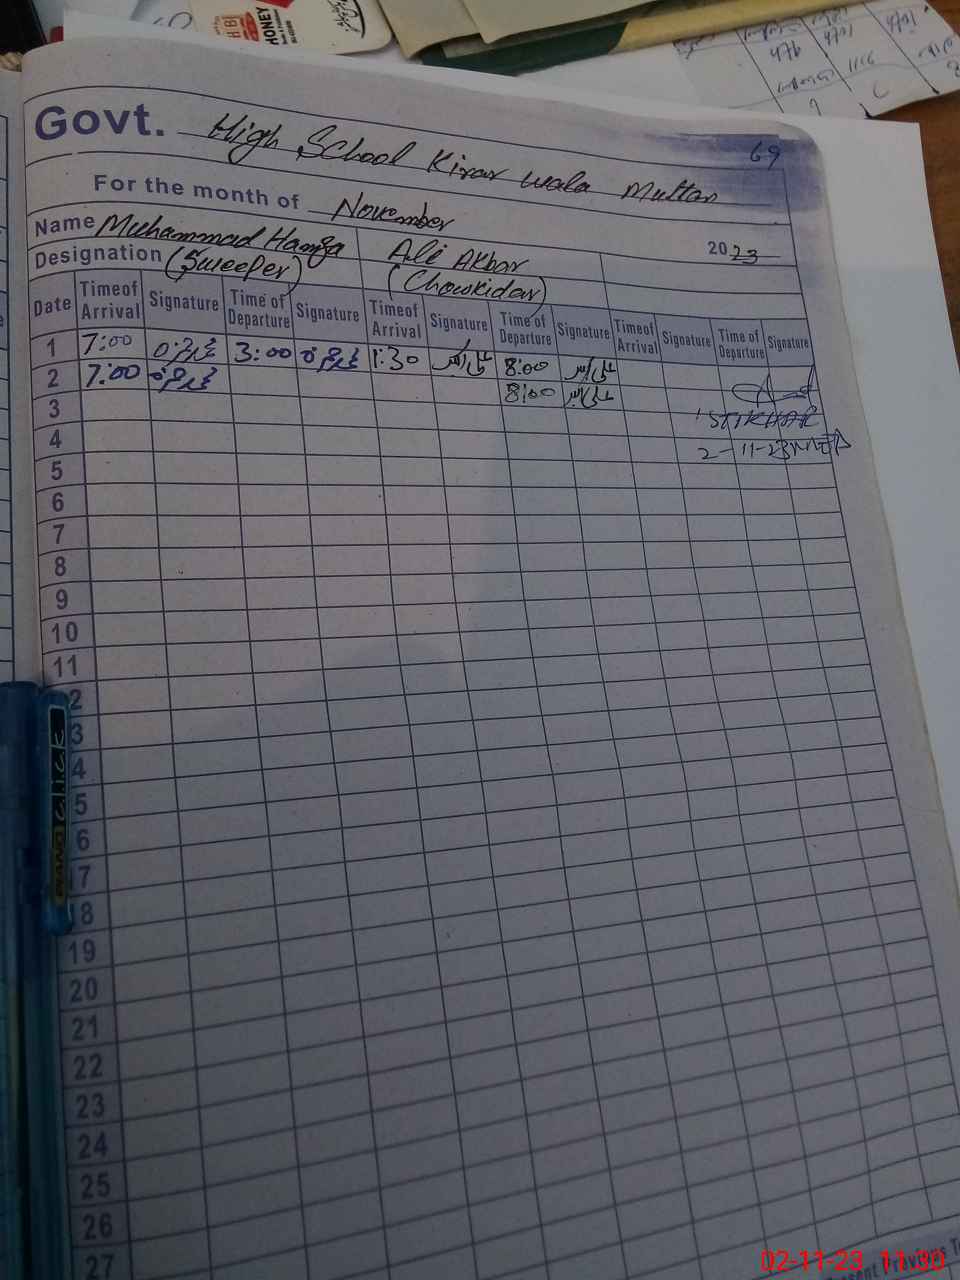 HONEY
69
Govt. High School Kirar wala Multan
For the month of November
2023
Name Muhammad Hamza Ali Akbar
Designation (Sweeper) (Chowkidar)
Date Timeof Arrival Signature Time of Departure Signature Timeof Arrival Signature Time of Departure Signature Timeof Arrival Signature Time of Departure Signature
1 7:00 محمد حمزہ 3:00 محمد حمزہ 1:30 علی اکبر 8:00 علی اکبر
2 7:00 محمد حمزہ 8:00 علی اکبر
3
4 2-11-23
5
6
7
8
9
10
11
2
3
4
5
6
17
18
19
20
21
22
23
24
25
26
27
PIANO click
02-11-23 11:30